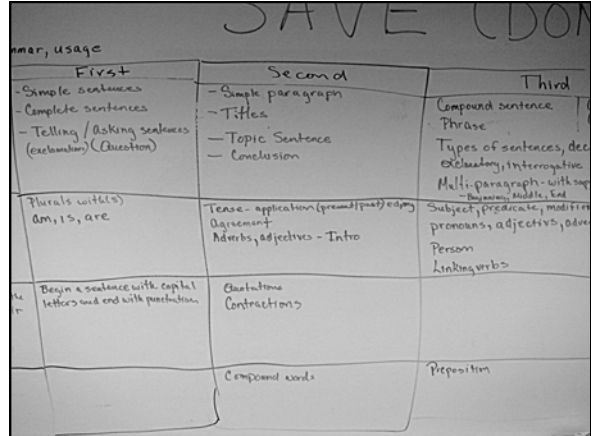 SAVE (DON
mmar, usage
First
- Simple sentences
- Complete sentences
- Telling / asking sentences
(exclamation) (Question)
Second
- Simple paragraph
- Titles
- Topic Sentence
- Conclusion
Third
Compound sentence
Phrase
Types of sentences, dec
exclamatory, interrogative
Multi-paragraph - with
- Beginning, Middle, End
Plurals with(s)
am, is, are
Tense - application (present/past) ed,ing
Agreement
Adverbs, adjectives - Intro
Subject, predicate,
pronouns, adjectives, adver
Person
Linking verbs
Begin a sentence with capital
letters and end with punctuation
Quotations
Contractions
Compound words
Preposition